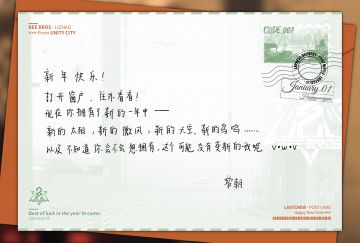 BEE BROS · LIZHAO
>>> From UNITY CITY
CODE:007
January.01
新年快乐！
打开窗户，往外看看！
现在你拥有了新的一年中——
新的太阳，新的微风，新的天空，新的鸟鸣……
以及不知道你会不会想拥有，这个可能没有变新的我呢 V●w●V
黎朝
Best of luck in the year to come.
January.01
LASTCREW · POST CARD
Happy New Year >>>